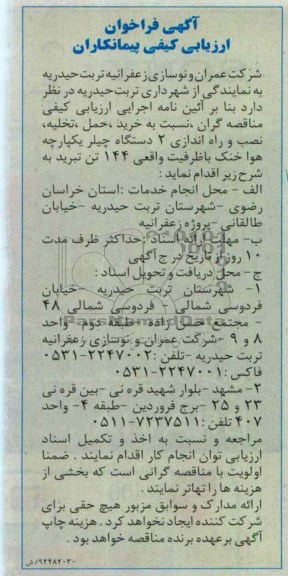 آگهی فراخوان
ارزیابی کیفی پیمانکاران
شرکت عمران و نوسازی زعفرانیه تربت حیدریه
به نمایندگی از شهرداری تربت حیدریه در نظر
دارد بنا بر آئین نامه اجرایی ارزیابی کیفی
مناقصه گران ،نسبت به خرید ،حمل ،تخلیه،
نصب و راه اندازی ۲ دستگاه چیلر یکپارچه
هوا خنک باظرفیت واقعی ۱۴۴ تن تبرید به
شرح زیر اقدام نماید :
الف - محل انجام خدمات :استان خراسان
رضوی -شهرستان تربت حیدریه -خیابان
طالقانی -پروژه زعفرانیه
ب- مهلت ارائه اسناد :حداکثر ظرف مدت
۱۰ روز از تاریخ درج آگهی
ج - محل دریافت و تحویل اسناد :
۱- شهرستان تربت حیدریه -خیابان
فردوسی شمالی - فردوسی شمالی ۴۸
- مجتمع حسن زاده -طبقه دوم- واحد
۸ و ۹ -شرکت عمران و نوسازی زعفرانیه
تربت حیدریه -تلفن :۲۲۴۷۰۰۲-۰۵۳۱
فاکس :۲۲۴۷۰۰۱-۰۵۳۱
۲- مشهد -بلوار شهید قره نی -بین قره نی
۲۳ و ۲۵ -برج فروردین -طبقه ۴- واحد
۴۰۷ تلفن :۷۲۳۷۵۱۱-۰۵۱۱
مراجعه و نسبت به اخذ و تکمیل اسناد
ارزیابی توان انجام کار اقدام نمایند . ضمنا
اولویت با مناقصه گرانی است که بخشی از
هزینه ها را تهاتر نمایند .
ارائه مدارک و سوابق مزبور هیچ حقی برای
شرکت کننده ایجاد نخواهد کرد . هزینه چاپ
آگهی بر عهده برنده مناقصه خواهد بود .
۹۲۴۸۲۰۳۰/ش